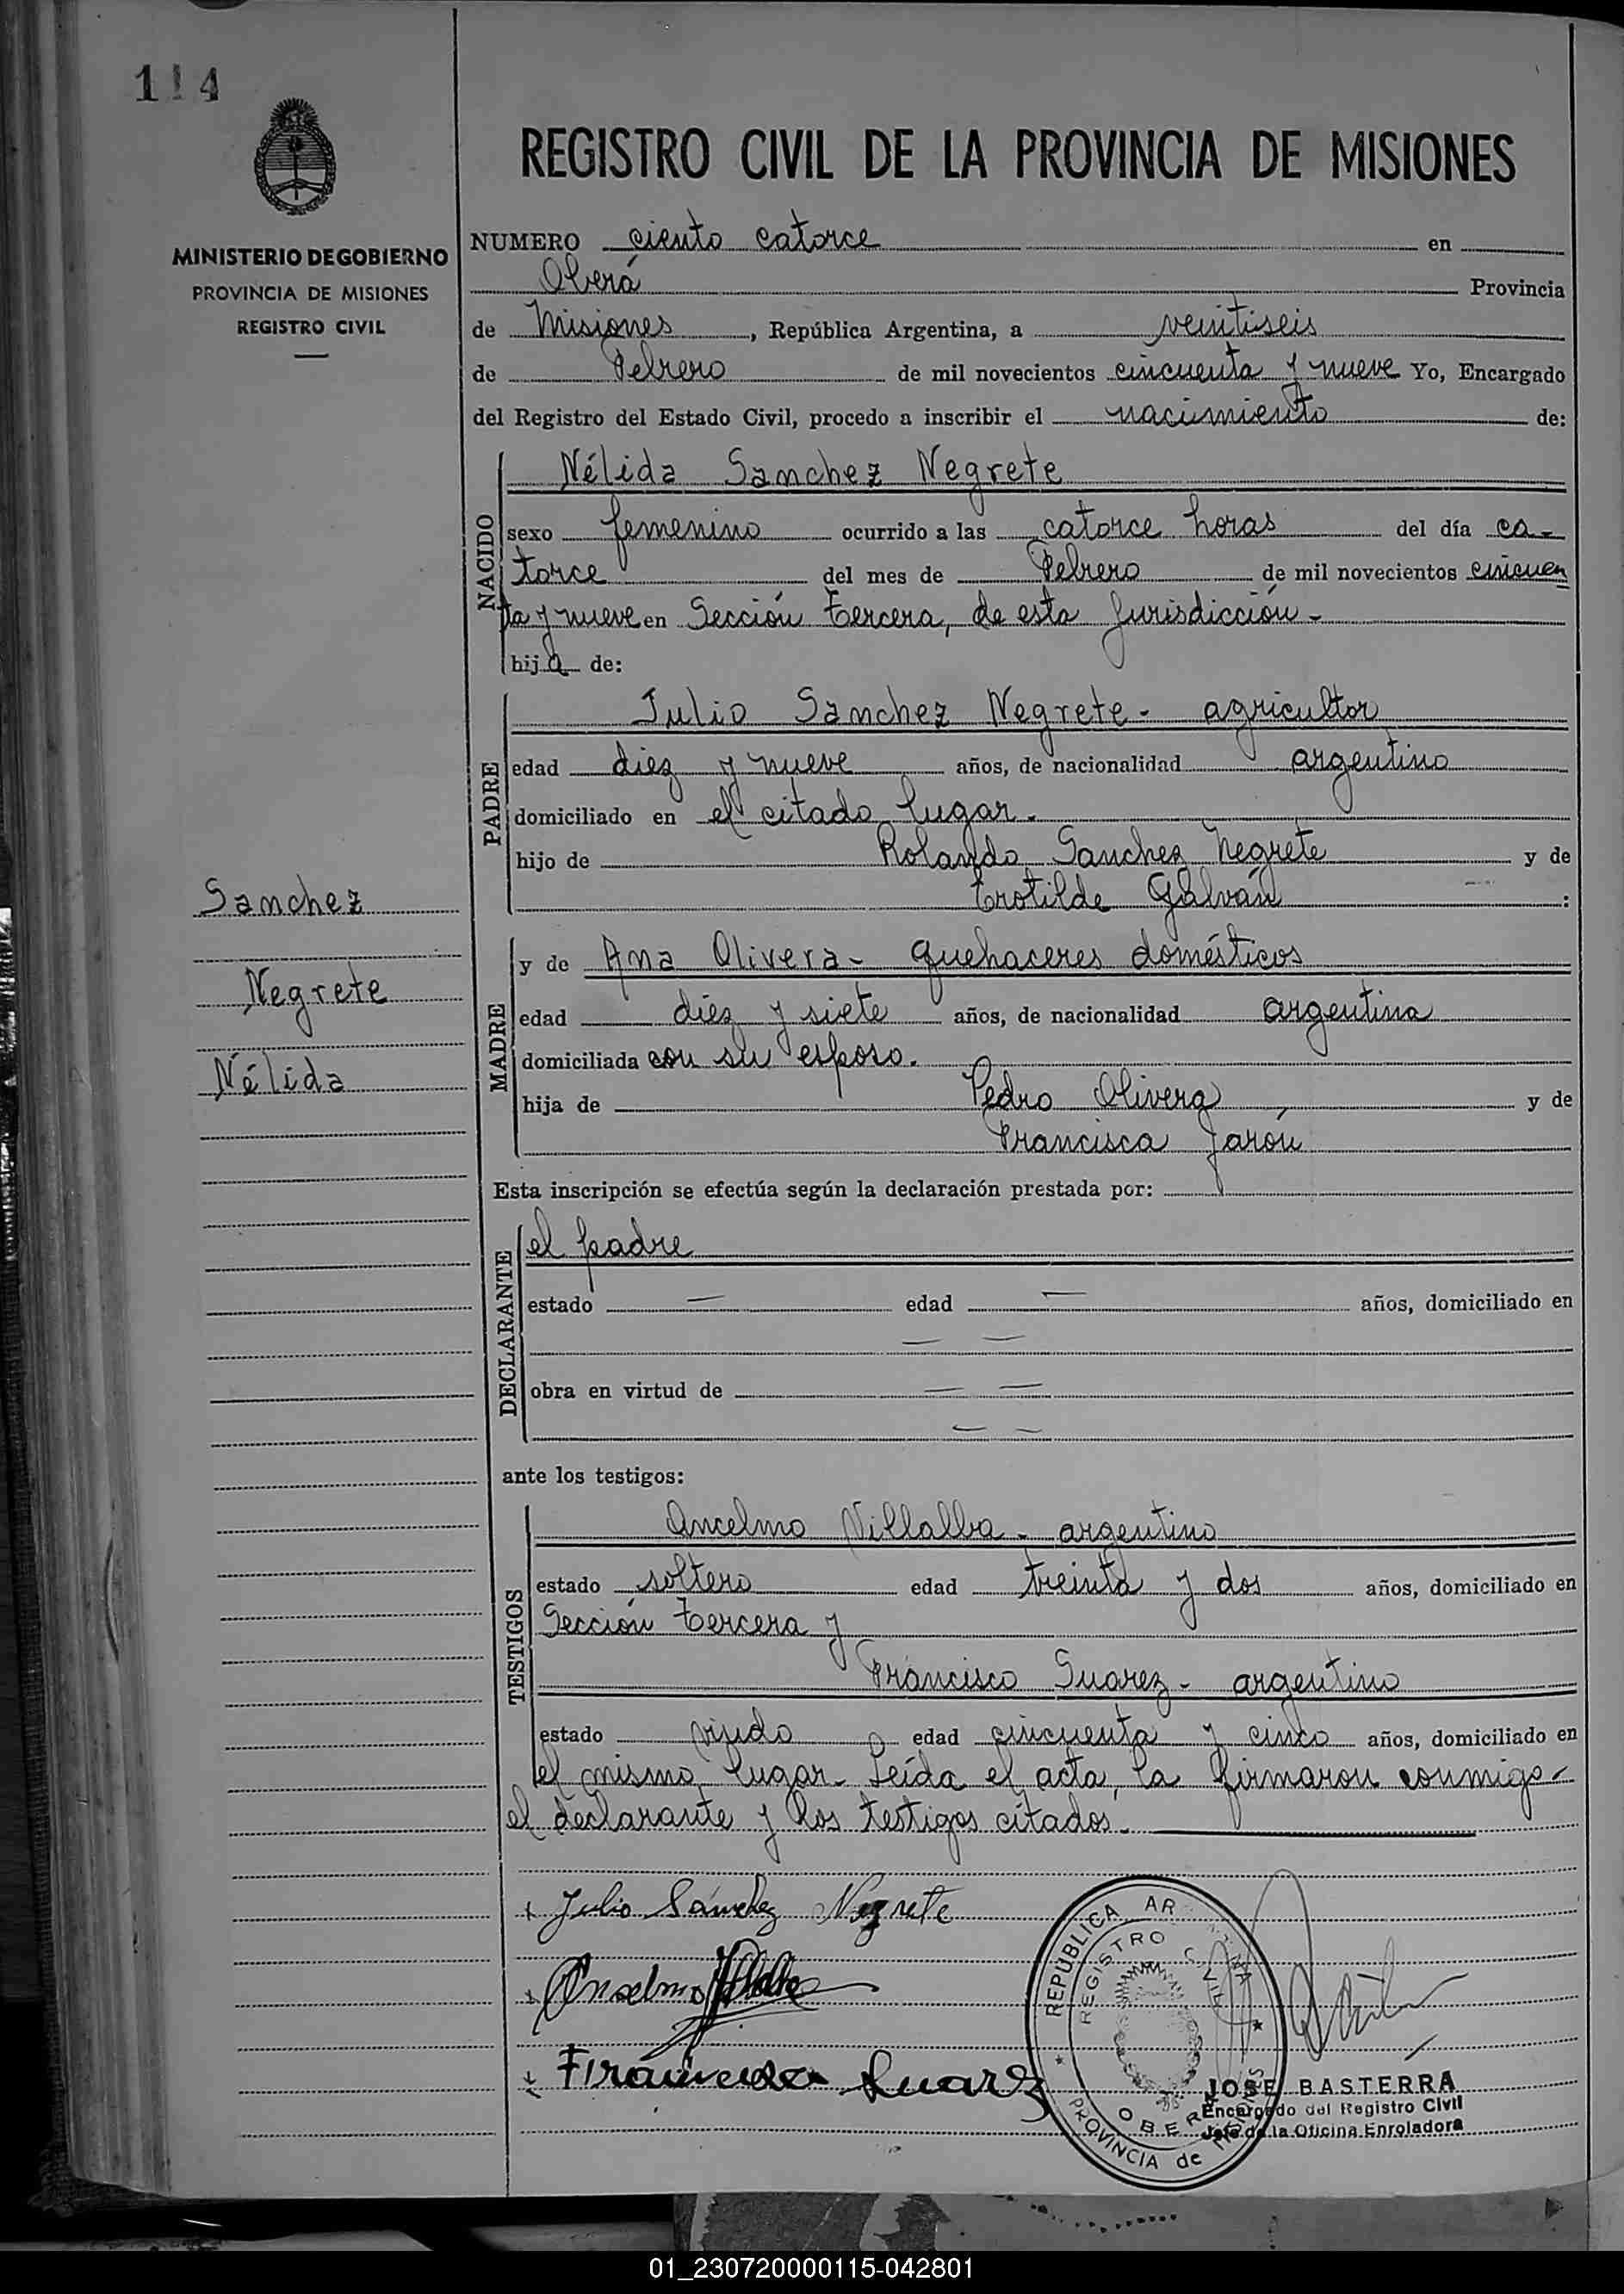 114
MINISTERIO DE GOBIERNO
PROVINCIA DE MISIONES
REGISTRO CIVIL
Sanchez
Negrete
Nélida
REGISTRO CIVIL DE LA PROVINCIA DE MISIONES
NUMERO ciento catorce en
Oberá Provincia
de Misiones, República Argentina, a veintiseis
de Febrero de mil novecientos cincuenta y nueve Yo, Encargado
del Registro del Estado Civil, procedo a inscribir el nacimiento de:
NACIDO
Nélida Sanchez Negrete
sexo femenino ocurrido a las catorce horas del día ca-
torce del mes de Febrero de mil novecientos cincuen
ta y nueve en Sección tercera, de esta Jurisdicción-
hija de:
PADRE
Julio Sanchez Negrete- agricultor
edad diez y nueve años, de nacionalidad argentino
domiciliado en el citado lugar.
hijo de Rolando Sanchez Negrete y de
Crotilde Galván:
MADRE
y de Ana Olivera- quehaceres domésticos
edad diez y siete años, de nacionalidad argentina
domiciliada con su esposo.
hija de Pedro Olivera, y de
Francisca Jarou
Esta inscripción se efectúa según la declaración prestada por:
DECLARANTE
el padre
estado — edad — años, domiciliado en
— —
obra en virtud de — —
— —
ante los testigos:
TESTIGOS
Ancelmo Villalba- argentino
estado soltero edad treinta y dos años, domiciliado en
Sección tercera y
Francisco Suarez- argentino
estado viudo edad cincuenta y cinco años, domiciliado en
el mismo lugar- Leída el acta, la firmaron conmigo-
el declarante y los testigos citados.-
Julio Sánchez Negrete
Anselmo Villalba
Francisco Suarez
REPÚBLICA ARGENTINA
REGISTRO CIVIL
OBERÁ
PROVINCIA de MISIONES
JOSE BASTERRA
Encargado del Registro Civil
Jefe de la Oficina Enroladora
01_230720000115-042801